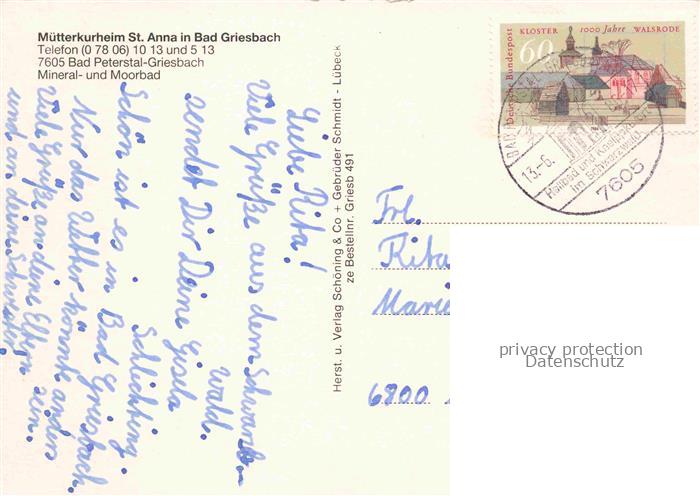 Mütterkurheim St. Anna in Bad Griesbach
Telefon (0 78 06) 10 13 und 5 13
7605 Bad Peterstal-Griesbach
Mineral- und Moorbad
Liebe Rita!
Viele Grüße aus dem Schwarz-
wald.
sendet Dir Deine Gisela
Schlichting
Schön ist es in Bad Griesbach.
Nur das Wetter könnt anders sein.
Viele Grüße an deine Eltern
und an deine Schwester.
Herst. u. Verlag Schöning & Co + Gebrüder Schmidt - Lübeck
ze Bestellnr. Griesb 491
Deutsche Bundespost
KLOSTER 1000 Jahre WALSRODE
60
BAD
13.-6.
Heilbad und Kneippkurort
im Schwarzwald
7605
Frl.
Rita
Marie
6800
privacy protection
Datenschutz